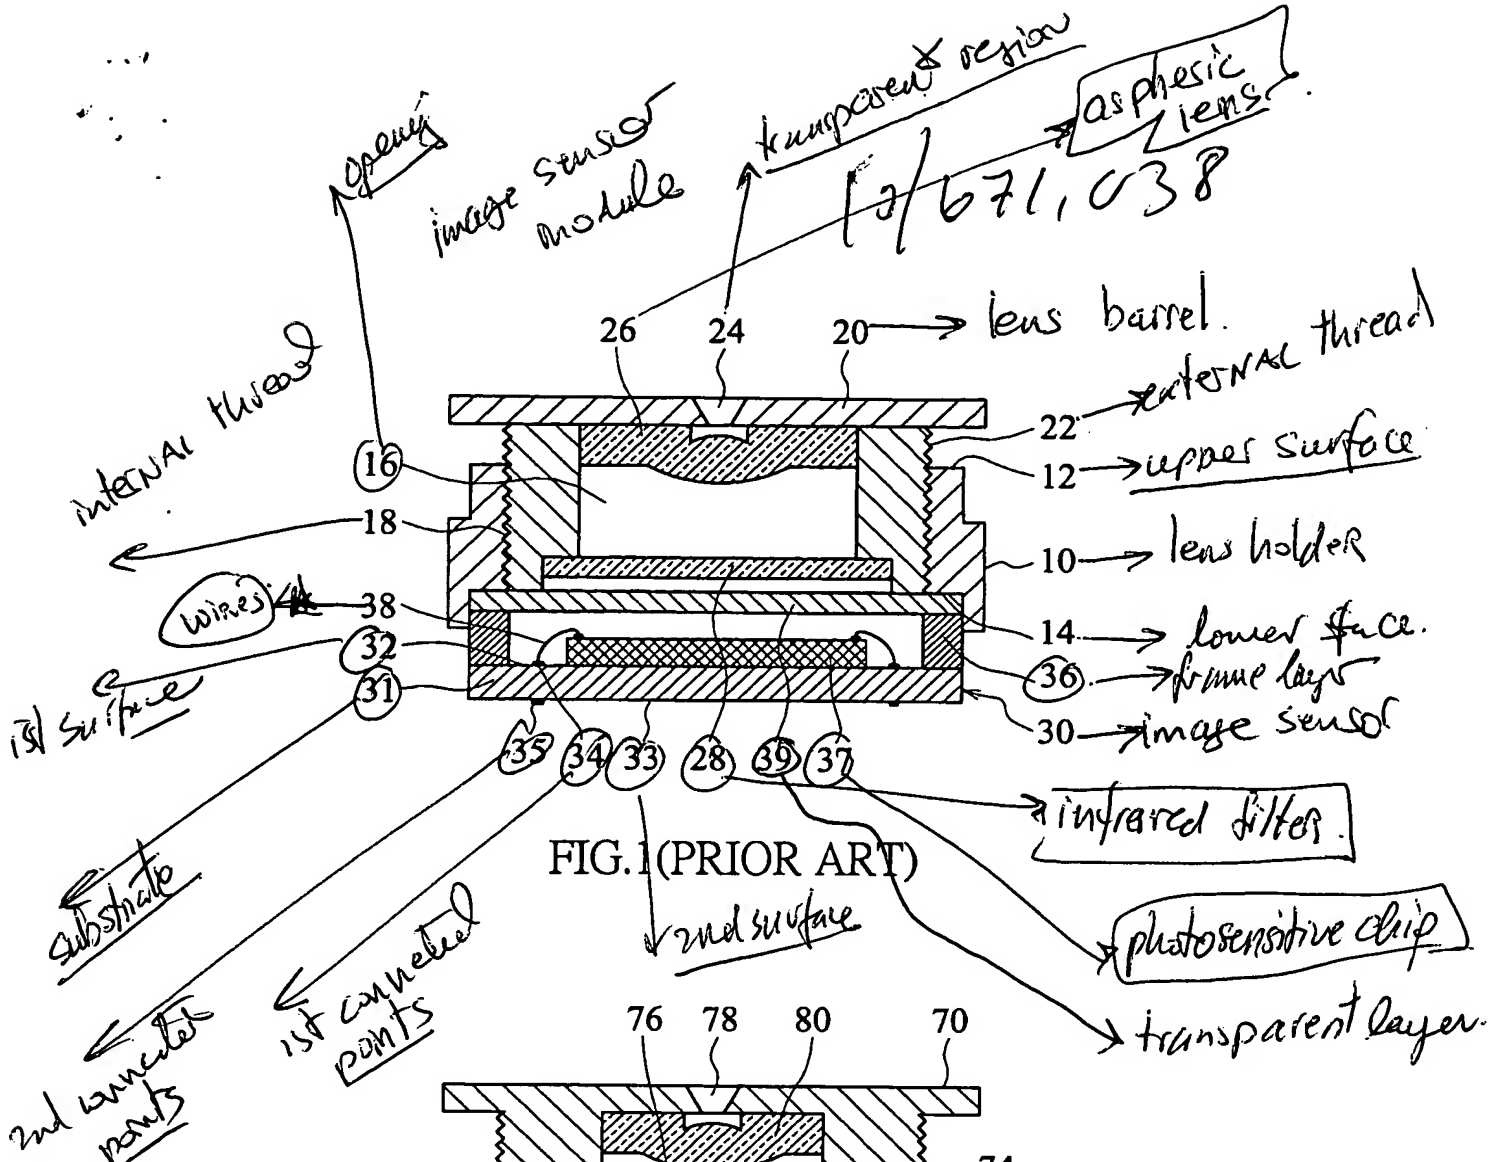 opening
image sensor
module
transparent region
aspheric
lens
10/671,038
26 24 20 lens barrel.
internal thread
22 external thread
16 12 upper surface
18
10 lens holder
wires 38
14 lower sface.
32
36 frame layer
31
1st surface
30 image sensor
35 34 33 28 39 37
infrared filter
FIG.1(PRIOR ART)
substrate
2nd surface
photosensitive chip
1st connected
points
76 78 80 70
transparent layer.
2nd connected
points
74